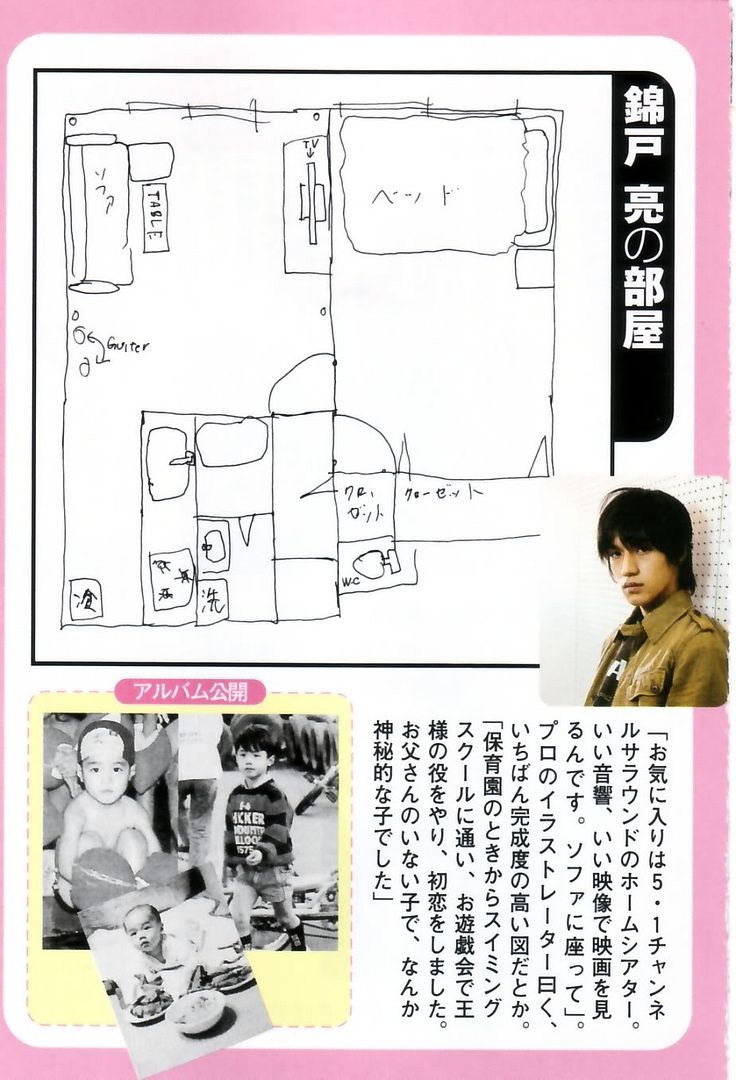 錦戸 亮の部屋
ソファ
TABLE
TV
ベッド
Guiter
クロー
ゼット
クローゼット
W.C
冷
洗
アルバム公開
「お気に入りは5・1チャンネ
ルサラウンドのホームシアター。
いい音響、いい映像で映画を見
るんです。ソファに座って」。
プロのイラストレーター曰く、
いちばん完成度の高い図だとか。
「保育園のときからスイミング
スクールに通い、お遊戯会で王
様の役をやり、初恋をしました。
お父さんのいない子で、なんか
神秘的な子でした」